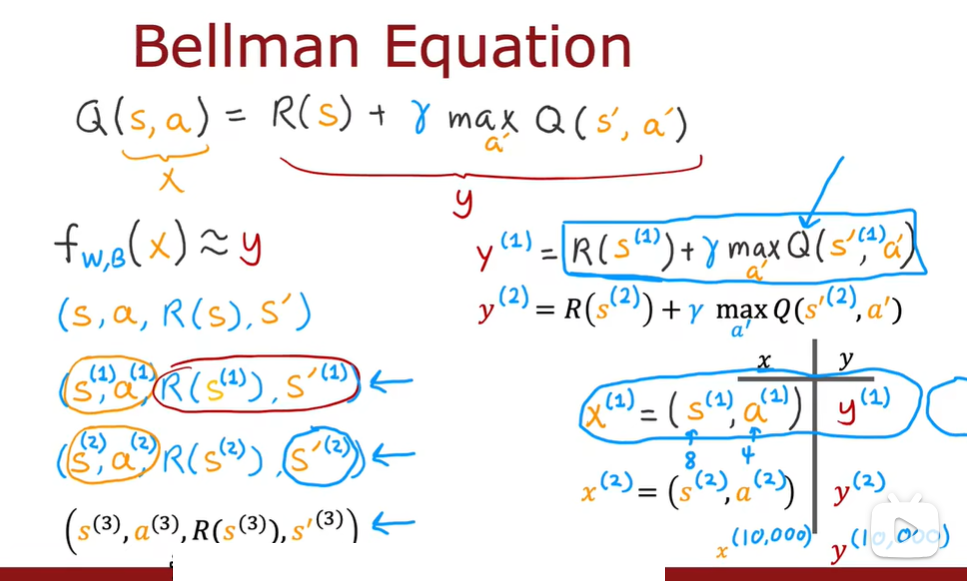 Bellman Equation
Q(s, a) = R(s) + γ max Q(s′, a′)
a′
x
y
f_{W,B}(x) ≈ y
(s, a, R(s), s′)
(s^{(1)}, a^{(1)}, R(s^{(1)}), s′^{(1)}) ←
(s^{(2)}, a^{(2)}, R(s^{(2)}), s′^{(2)}) ←
(s^{(3)}, a^{(3)}, R(s^{(3)}), s′^{(3)}) ←
y^{(1)} = R(s^{(1)}) + γ max Q(s′^{(1)}, a′)
a′
y^{(2)} = R(s^{(2)}) + γ max Q(s′^{(2)}, a′)
a′
x y
x^{(1)} = (s^{(1)}, a^{(1)}) y^{(1)}
8 4
x^{(2)} = (s^{(2)}, a^{(2)}) y^{(2)}
x^{(10,000)} y^{(10,000)}